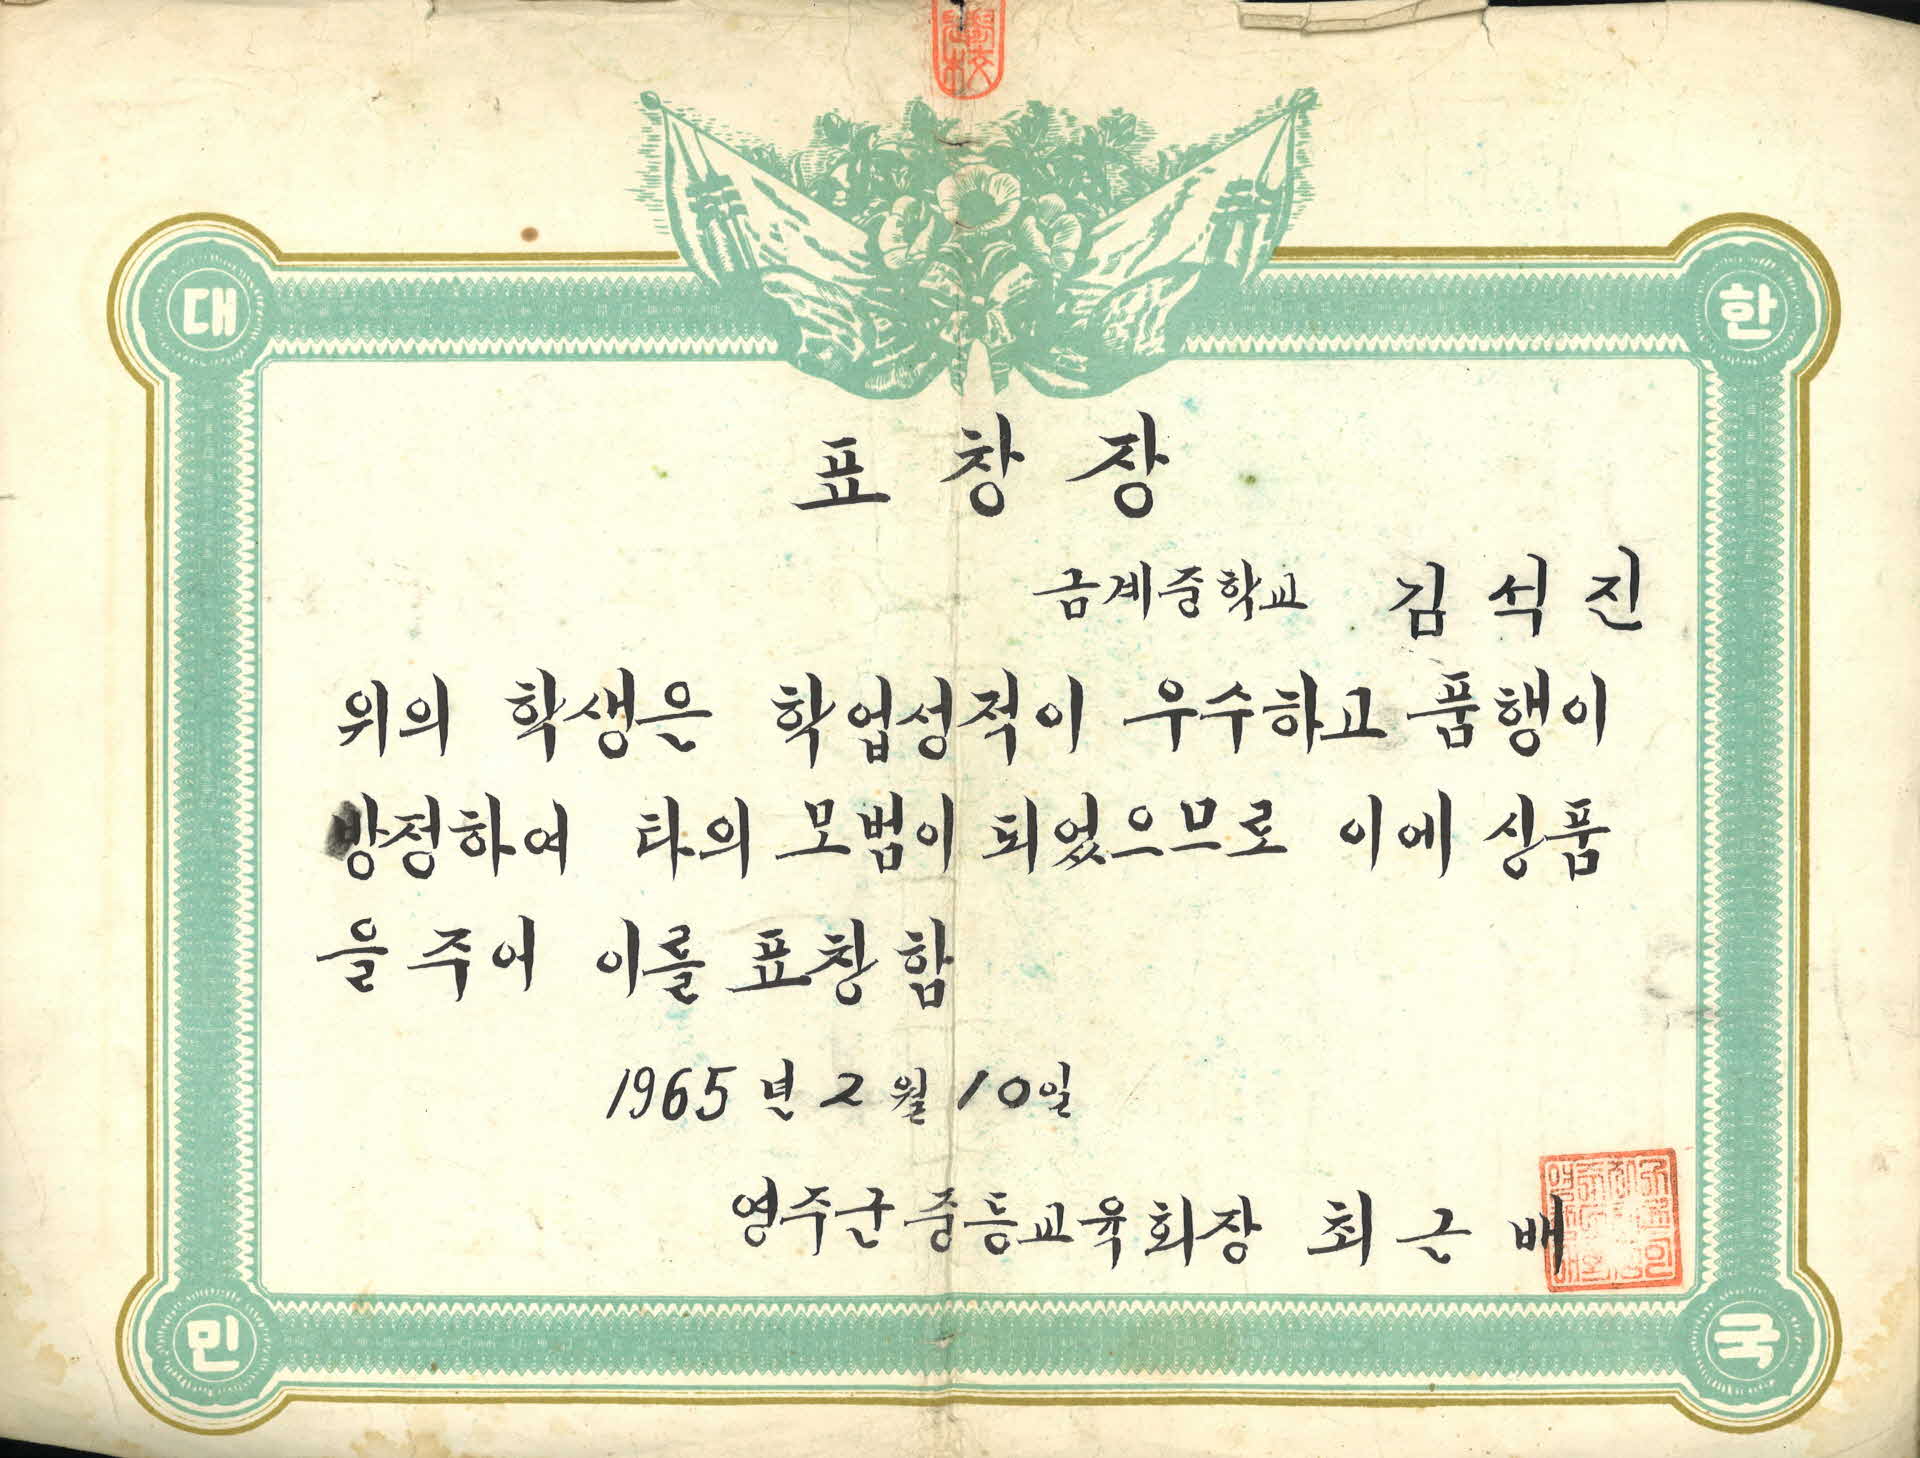 대 한
표창장
금계중학교 김석진
위의 학생은 학업성적이 우수하고 품행이
방정하여 타의 모범이 되었으므로 이에 상품
을 주어 이를 표창함
1965년 2월 10일
영주군 중등교육회장 최근배
민 국